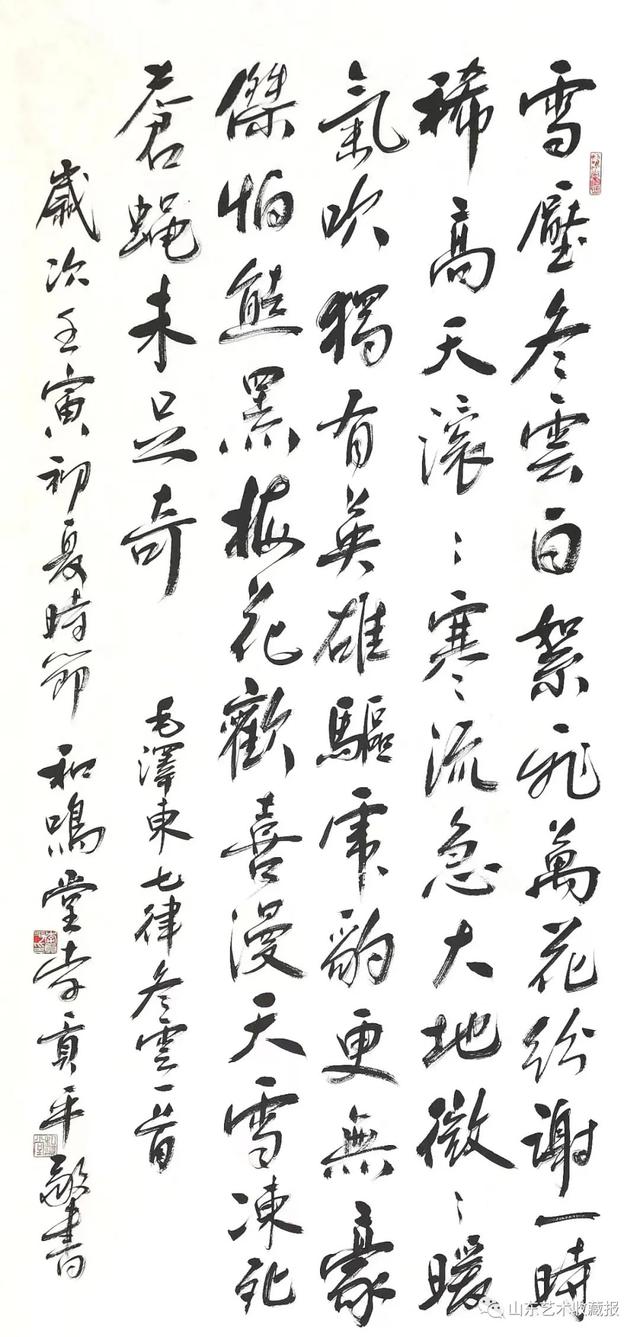 雪壓冬雲白絮飛萬花紛謝一時
稀高天滾〻寒流急大地微〻暖
氣吹獨有英雄驅虎豹更無豪
傑怕熊羆梅花歡喜漫天雪凍死
蒼蠅未足奇
毛澤東七律冬雲一首
歲次壬寅初夏時節 和鳴堂李貢平敬書
山东艺术收藏报